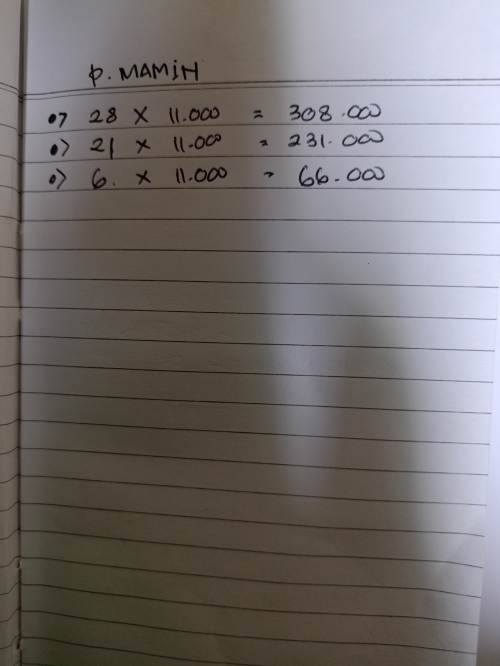 P. MAMIN
•> 28 X 11.000 = 308.000
•> 21 X 11.000 = 231.000
•> 6. X 11.000 = 66.000